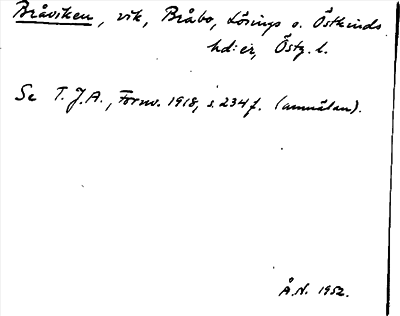 Bråviken, vik, Bråbo, Lösings o. Östkinds
hd:er, Östg. l.
Se T. J. A., Fornv. 1918, s. 234 f. (anmälan).
Å. N. 1952.